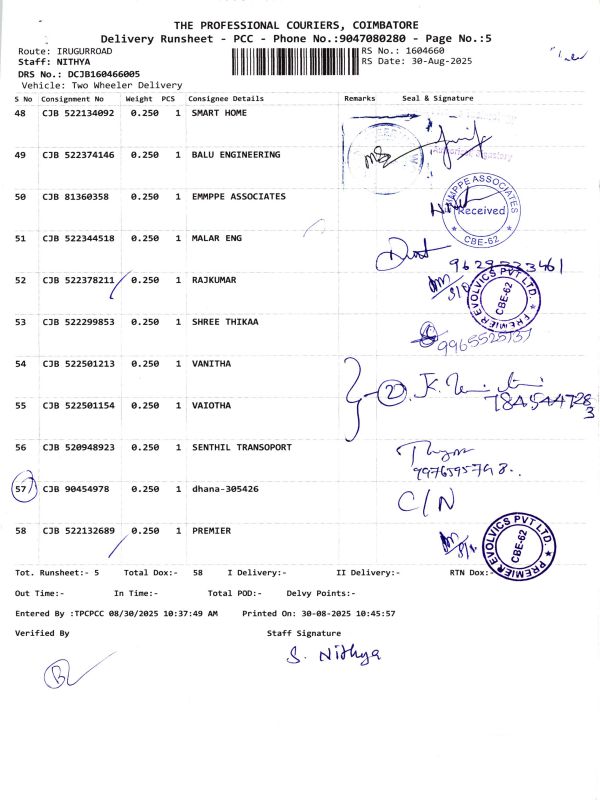 THE PROFESSIONAL COURIERS, COIMBATORE
Delivery Runsheet - PCC - Phone No.:9047080280 - Page No.:5
Route: IRUGURROAD
RS No.: 1604660
Staff: NITHYA
RS Date: 30-Aug-2025
DRS No.: DCJB160466005
Vehicle: Two Wheeler Delivery
S No Consignment No Weight PCS Consignee Details Remarks Seal & Signature
48 CJB 522134092 0.250 1 SMART HOME
49 CJB 522374146 0.250 1 BALU ENGINEERING
Authorised Signatory
50 CJB 81360358 0.250 1 EMMPPE ASSOCIATES
EMMPPE ASSOCIATES
Received
* CBE-62 *
51 CJB 522344518 0.250 1 MALAR ENG
9629333461
52 CJB 522378211 0.250 1 RAJKUMAR
PREMIER EVOLVICS PVT LTD.
CBE-62
53 CJB 522299853 0.250 1 SHREE THIKAA
9965525737
54 CJB 522501213 0.250 1 VANITHA
2
55 CJB 522501154 0.250 1 VAIOTHA
7845447283
56 CJB 520948923 0.250 1 SENTHIL TRANSOPORT
9976595748
57 CJB 90454978 0.250 1 dhana-305426
C/N
58 CJB 522132689 0.250 1 PREMIER
PREMIER EVOLVICS PVT LTD.
CBE-62
Tot. Runsheet:- 5 Total Dox:- 58 I Delivery:- II Delivery:- RTN Dox:-
Out Time:- In Time:- Total POD:- Delvy Points:-
Entered By :TPCPCC 08/30/2025 10:37:49 AM Printed On: 30-08-2025 10:45:57
Verified By Staff Signature
S. Nithya